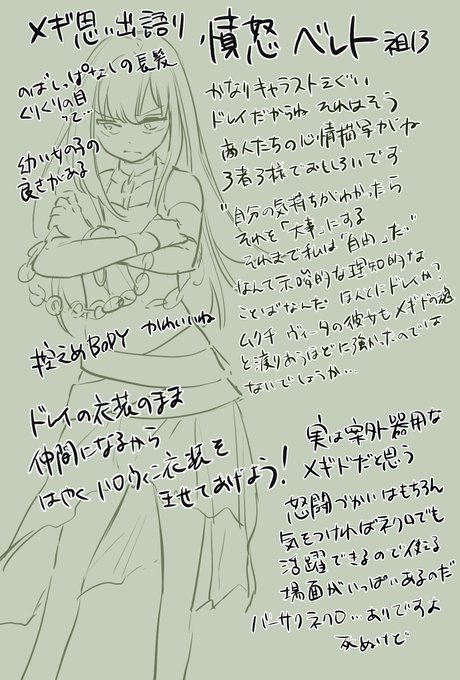 メギ思い出語り
憤怒 ベレト 祖13
のばしっぱなしの長髪
ぐりぐりの目
って…
幼い女の子の
良さがある
かなりキャラストエぐい
ドレイだからね それはそう
商人たちの心情描写がね
3者3様でおもしろいです
"自分の気持ちがわかったら
それを「大事」にする
それまで私は「自由」だ"
なんて示唆的な理知的な
ことばなんだ ほんとにドレイか?
ムクチ ヴィータの彼女もメギドの魂
と渡りあうほどに強かったのでは
ないでしょうか…
控えめBODY かわいいね
ドレイの衣装のまま
仲間になるから
はやくハロウィン衣装を
きせてあげよう!
実は案外器用な
メギドだと思う
怒闘づかいはもちろん
気をつければネクロでも
活躍できるので使える
場面がいっぱいあるのだ
バーサクネクロ…ありですよ
死ぬけど